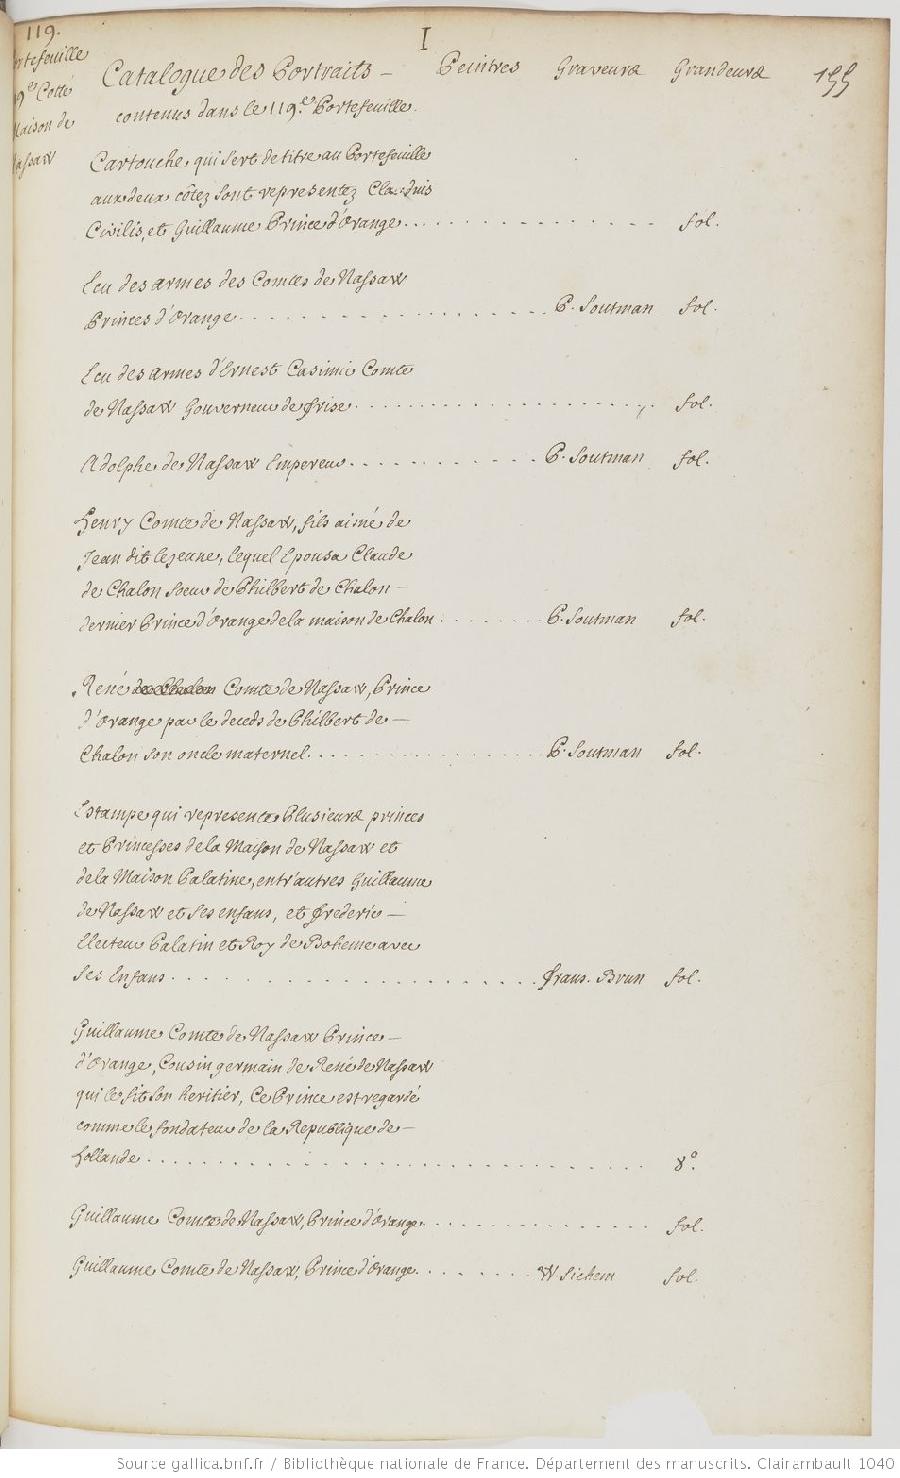 119.
I
Portefeuille
119e Cotté
Maison de
Nassaw
Catalogue des Portraits — Peintres Graveurs Grandeurs 155
contenus dans le 119.e Portefeuille.
Cartouche, qui sert de titre au Portefeuille
aux deux côtez sont representez Claudius
Civilis, et Guillaume Prince d'Orange. fol.
Ecu des armes des Comtes de Nassaw
Princes d'Orange P. Soutman fol.
Ecu des armes d'Ernest Casimir Comte
de Nassaw Gouverneur de frise. fol.
Adolphe de Nassaw Empereur. P. Soutman fol.
Henry Comte de Nassaw, fils aisné de
Jean dit le jeune, lequel Epousa Claude
de Chalon soeur de Philbert de Chalon —
dernier Prince d'Orange de la maison de Chalon P. Soutman fol.
René de Chalon Comte de Nassaw, Prince
d'Orange par le deceds de Philbert de —
Chalon son oncle maternel. P. Soutman fol.
Estampe qui represente Plusieurs princes
et Princesses de la Maison de Nassaw et
de la Maison Palatine, entr'autres Guillaume
de Nassaw et ses enfans, et frederic —
Electeur Palatin et Roy de Boheme avec
ses Enfans. frans. Brun fol.
Guillaume Comte de Nassaw Prince —
d'Orange, Cousin germain de René de Nassaw
qui le fit son heritier, Ce Prince est regardé
comme le fondateur de la Republique de —
Hollande 8.o
Guillaume Comte de Nassaw, Prince d'Orange. fol.
Guillaume Comte de Nassaw, Prince d'Orange. W Sichem fol.
Source gallica.bnf.fr / Bibliothèque nationale de France. Département des manuscrits. Clairambault 1040